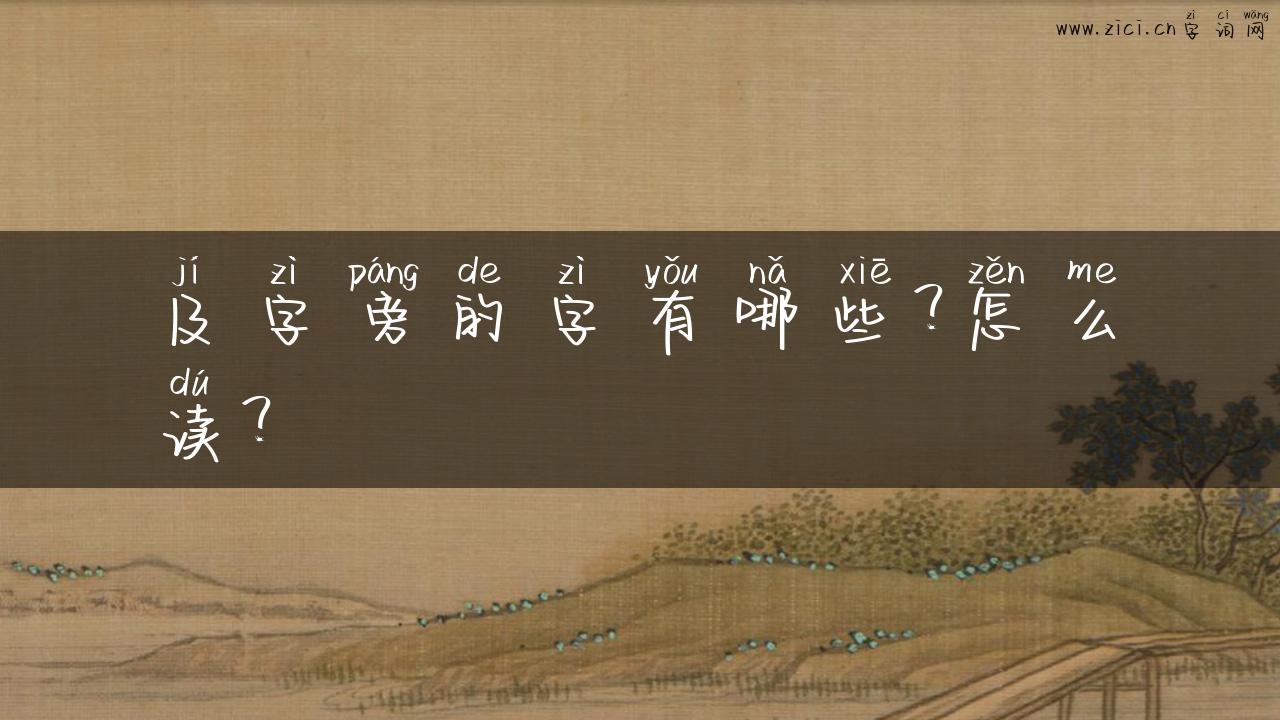 zì cí wǎng
www.zici.cn字词网
jí zì páng de zì yǒu nǎ xiē zěn me
及字旁的字有哪些?怎么
dú
读?